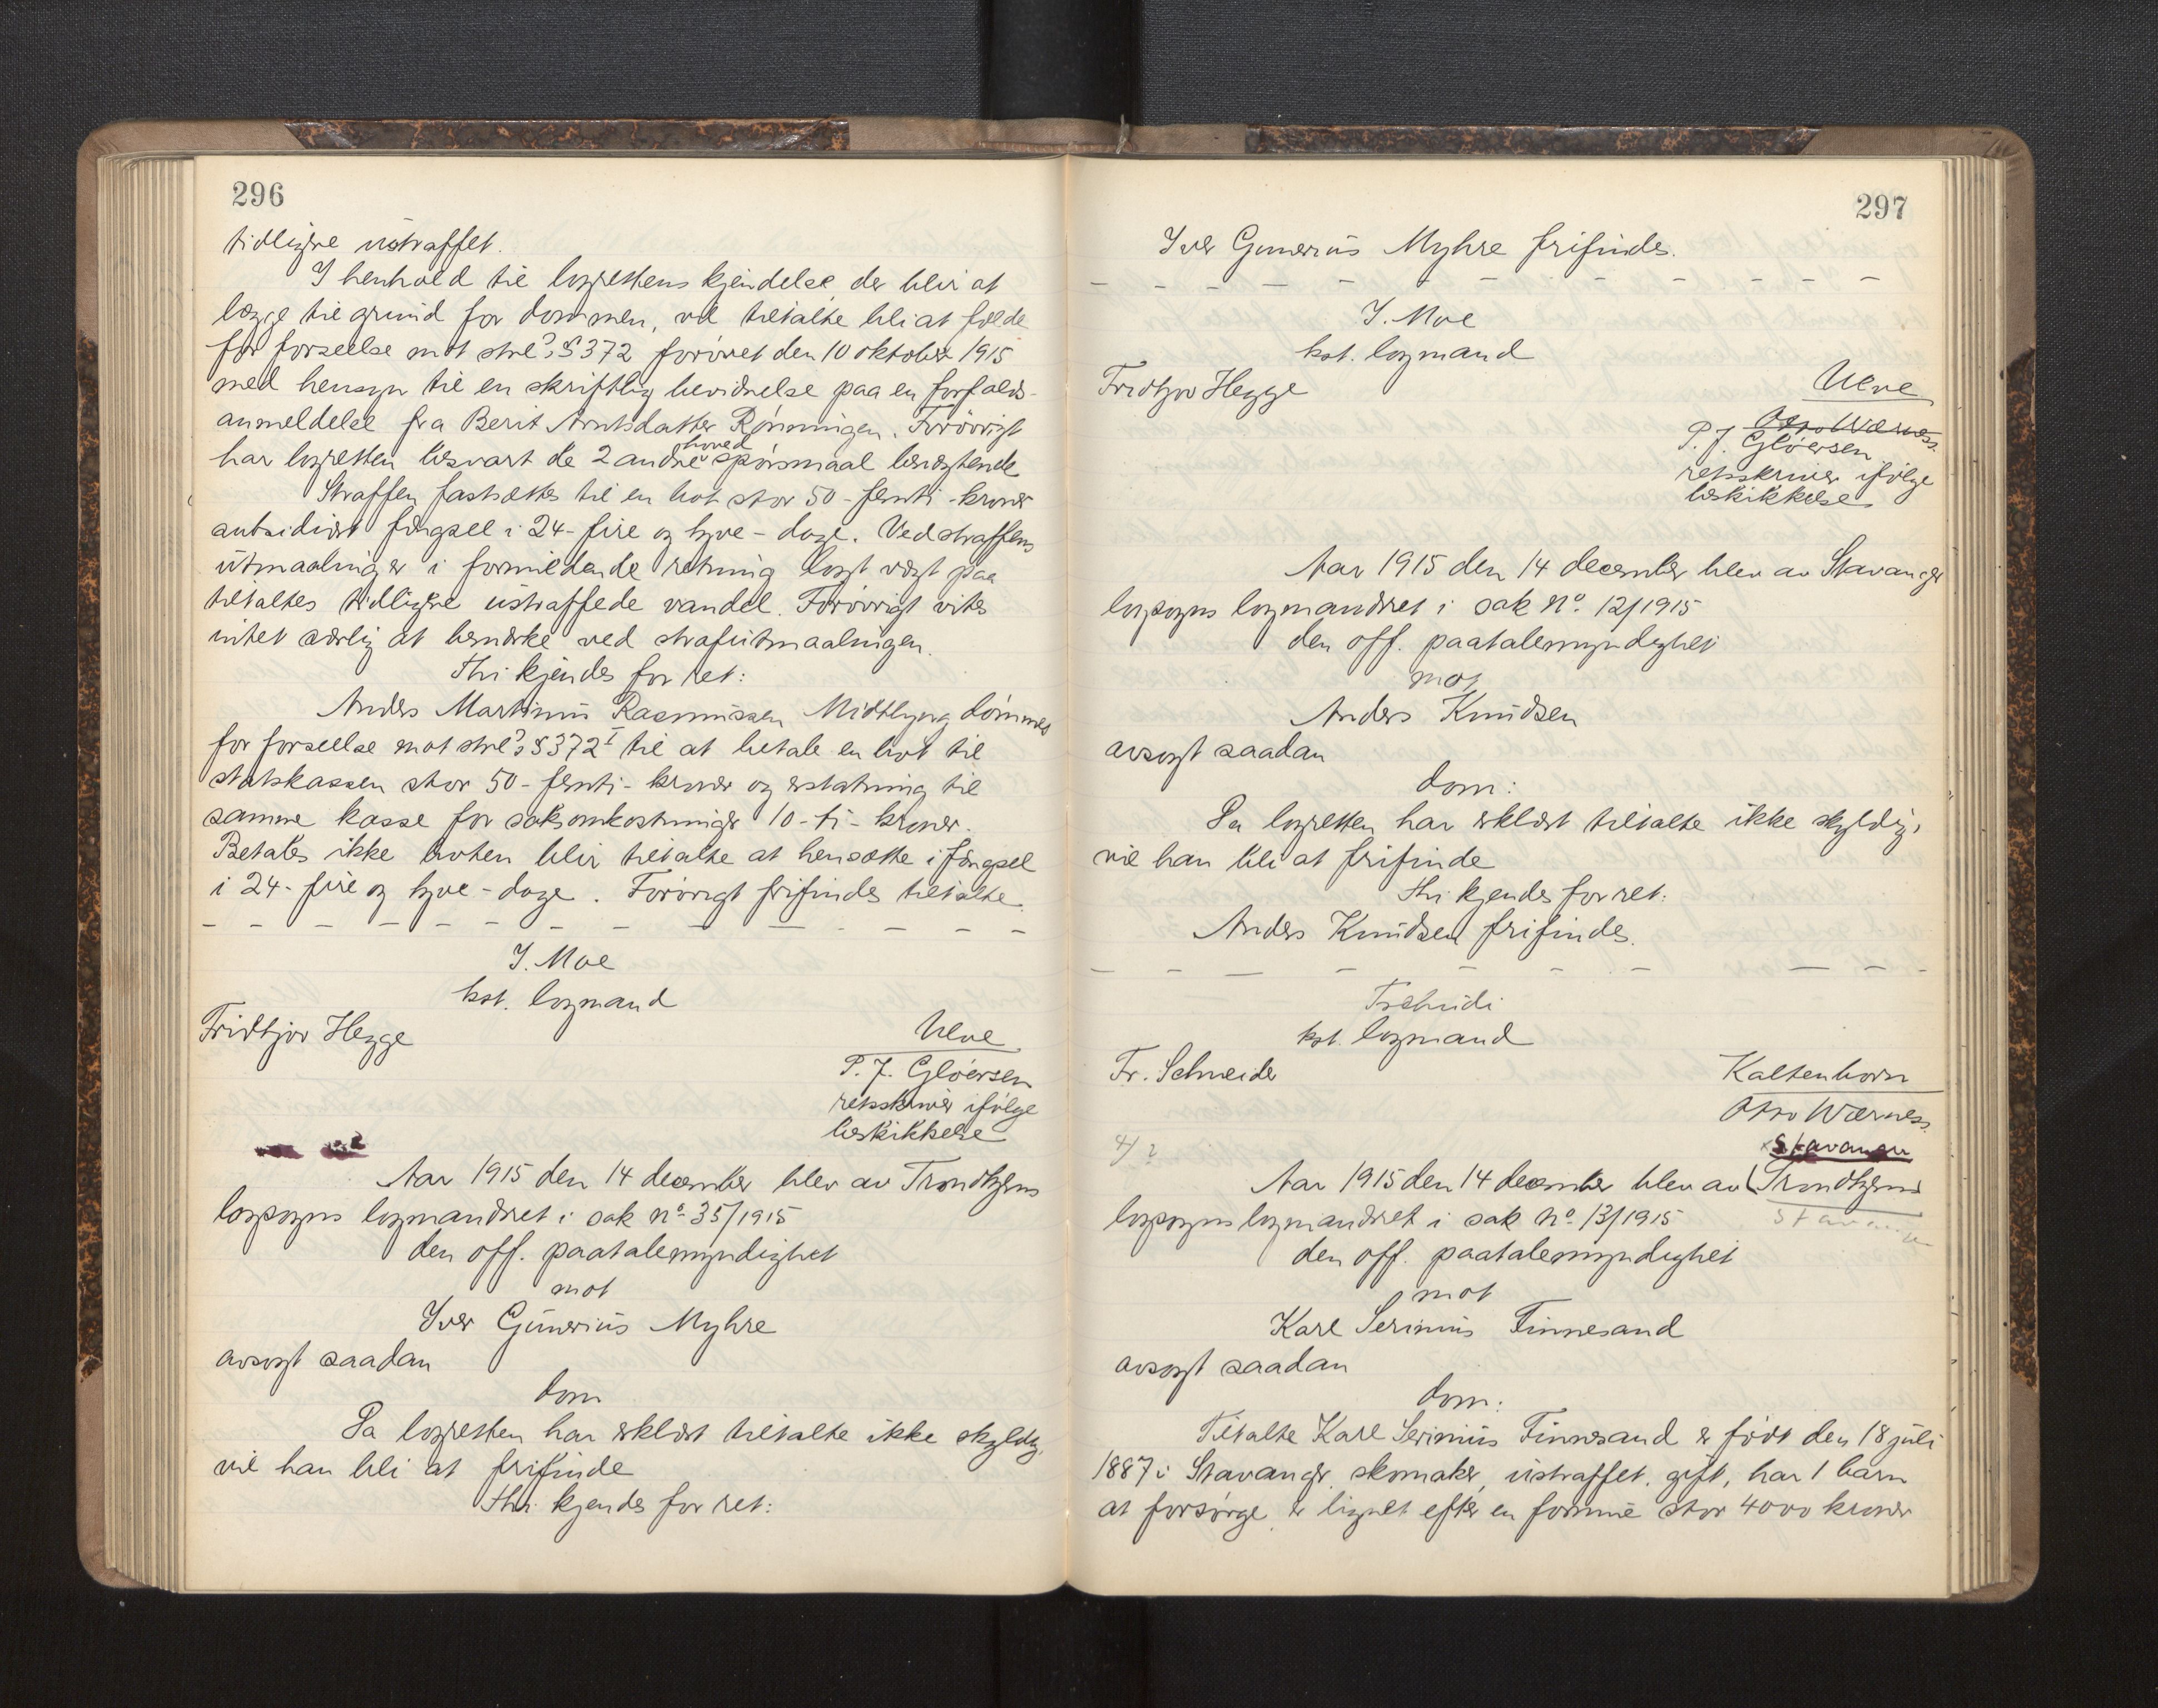 296
tidligere ustraffet.
I henhold til lagrettens kjendelse, der blir at
lægge til grund for dommen, vil tiltalte bli at fælde
for forseelse mot strl's § 372 forövet den 10 oktober 1915
med hensyn til en skriftlig bevidnelse paa en forfalds-
anmeldelse fra Berit Arntsdatter Rönningen. Forövrigt
har lagretten besvart de 2 andre hovedspörsmaal benægtende
Straffen fastsættes til en bot stor 50 - femti - kroner
subsidiært fængsel i 24 - fire og tyve - dage. Ved straffens
utmaaling er i formildende retning lagt vægt paa
tiltaltes tidligere ustraffede vandel. Forövrigt vites
intet særlig at bemerke ved strafutmaalingen.
Thi kjendes for ret:
Anders Martinus Rasmussen Midtlyng dömmes
for forseelse mot strl's § 372 I til at betale en bot til
statskassen stor 50 - femti - kroner og erstatning til
samme kasse for saksomkostninger 10 - ti - kroner.
Betales ikke boten blir tiltalte at hensætte i fængsel
i 24 - fire og tyve - dage. Forövrigt frifindes tiltalte.
I. Moe
kst. lagmand
Fridtjov Hegge
Ulve
P. J. Glöersen
retsskriver ifölge
beskikkelse
Aar 1915 den 14 december blev av Trondhjems
lagsogns lagmandsret i sak No 35/1915
den off. paatalemyndighet
mot
Iver Gunerius Myhre
avsagt saadan
dom
Da lagretten har erklært tiltalte ikke skyldig,
vil han bli at frifinde
Thi kjendes for ret:
297
Iver Gunerius Myhre frifindes.
I. Moe
kst. lagmand
Fridtjov Hegge
Ulve
Otto Wærness.
P. J. Glöersen
retsskriver ifölge
beskikkelse
Aar 1915 den 14 december blev av Stavanger
lagsogns lagmandsret i sak No. 12/1915
den off. paatalemyndighet
mot
Anders Knudsen
avsagt saadan
dom:
Da lagretten har erklært tiltalte ikke skyldig,
vil han bli at frifinde
Thi kjendes for ret:
Anders Knudsen frifindes.
Tschudi
kst. lagmand
Fr. Schneider
Kaltenborn
Otto Wærness.
4/ ?
x Stavanger
Aar 1915 den 14 december blev av Trondhjems
lagsogns lagmandsret i sak No. 13/1915
Stavanger
den off. paatalemyndighet
mot
Karl Serinius Finnesand
avsagt saadan
dom:
Tiltalte Karl Serinius Finnesand er födt den 18 juli
1887 i Stavanger, skomaker, ustraffet, gift, har 1 barn
at forsörge, er lignet efter en formue stor 4000 kroner